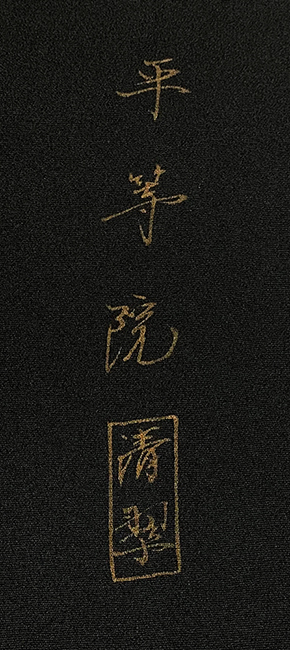 平等院
清翠